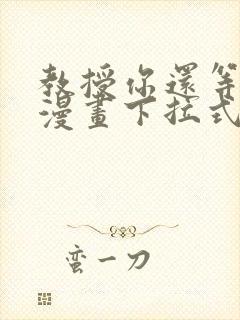 教授你還等
漫畫下拉式
蛮一刀